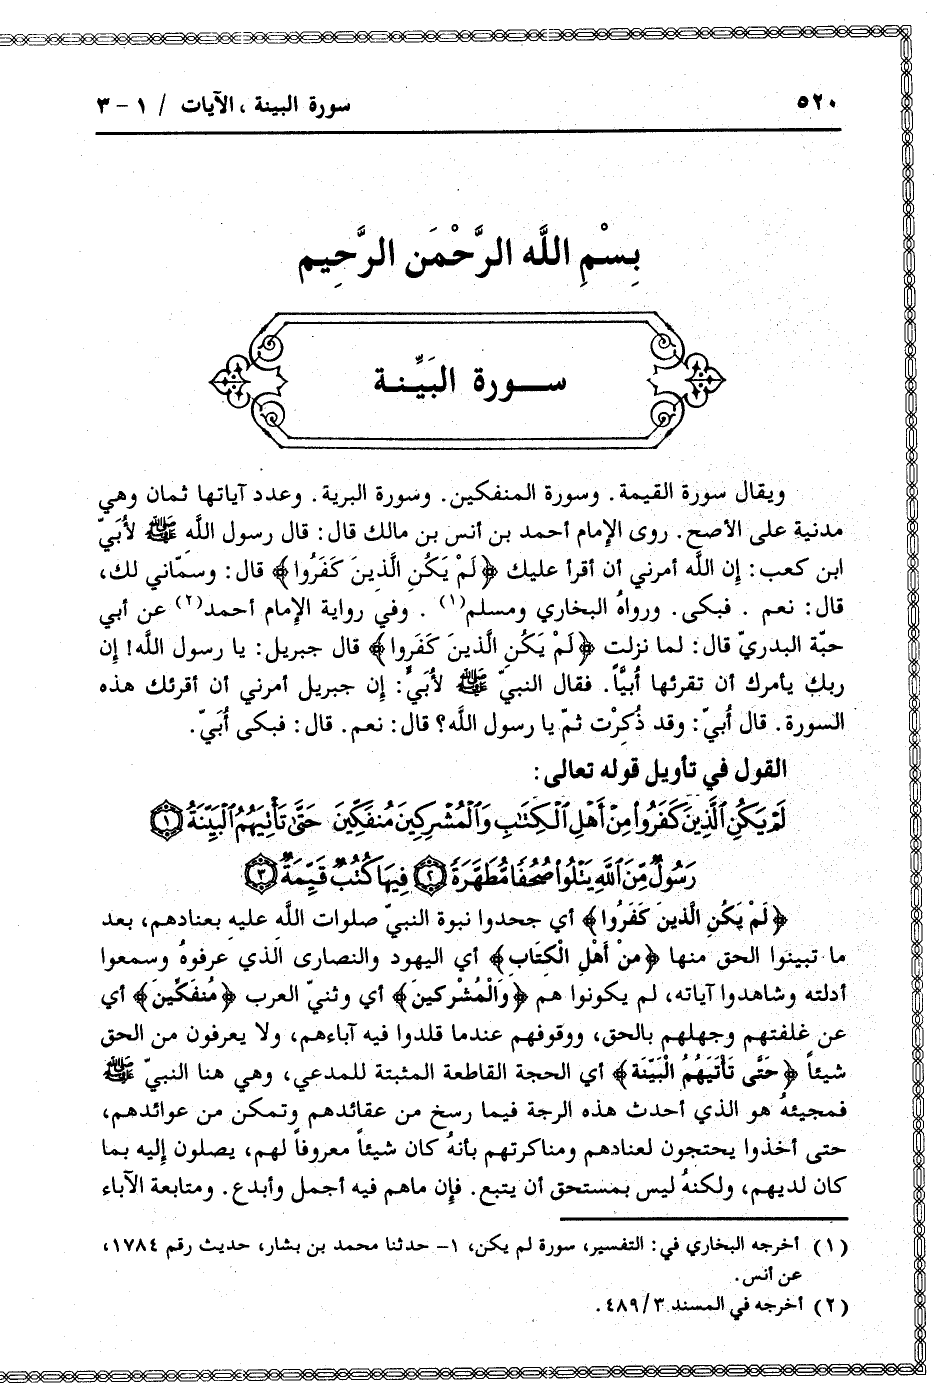 ٥٢٠
سورة البينة ، الآيات / ١ - ٣
بِسْمِ اللَّه الرَّحْمَن الرَّحِيم
ســورة البَيِّنـة
ويقال سورة القيمة. وسورة المنفكين. وسورة البرية. وعدد آياتها ثمان وهي
مدنية على الأصح. روى الإمام أحمد بن أنس بن مالك قال: قال رسول اللَّه ﷺ لأُبَيّ
ابن كعب: إن اللَّه أمرني أن أقرأ عليك ﴿لَمْ يَكُنِ الَّذِينَ كَفَرُوا﴾ قال: وسمّاني لك،
قال: نعم . فبكى. ورواهُ البخاري ومسلم(١) . وفي رواية الإمام أحمد(٢) عن أبي
حبّة البدريّ قال: لما نزلت ﴿لَمْ يَكُنِ الَّذينَ كَفَرُوا﴾ قال جبريل: يا رسول اللَّه! إن
ربك يأمرك أن تقرئها أُبيًّا. فقال النبيّ ﷺ لأُبَيّ: إن جبريل أمرني أن أقرئك هذه
السورة. قال أُبيّ: وقد ذُكِرْت ثمّ يا رسول اللَّه؟ قال: نعم. قال: فبكى أُبَيّ.
القول في تأويل قوله تعالى:
لَمْ يَكُنِ ٱلَّذِينَ كَفَرُوا۟ مِنْ أَهْلِ ٱلْكِتَـٰبِ وَٱلْمُشْرِكِينَ مُنفَكِّينَ حَتَّىٰ تَأْتِيَهُمُ ٱلْبَيِّنَةُ ١
رَسُولٌ مِّنَ ٱللَّهِ يَتْلُوا۟ صُحُفًا مُّطَهَّرَةً ٢ فِيهَا كُتُبٌ قَيِّمَةٌ ٣
﴿لَمْ يَكُنِ الَّذينَ كَفَرُوا﴾ أي جحدوا نبوة النبيّ صلوات اللَّه عليه بعنادهم، بعد
ما تبينوا الحق منها ﴿مِنْ أَهْلِ الْكِتَابِ﴾ أي اليهود والنصارى الذي عرفوهُ وسمعوا
أدلته وشاهدوا آياته، لم يكونوا هم ﴿وَالْمُشْركينَ﴾ أي وثنيّ العرب ﴿مُنفَكِّينَ﴾ أي
عن غلفتهم وجهلهم بالحق، ووقوفهم عندما قلدوا فيه آباءهم، ولا يعرفون من الحق
شيئاً ﴿حَتَّى تَأْتَيَهُمُ الْبَيِّنَة﴾ أي الحجة القاطعة المثبتة للمدعي، وهي هنا النبيّ ﷺ
فمجيئهُ هو الذي أحدث هذه الرجة فيما رسخ من عقائدهم وتمكن من عوائدهم،
حتى أخذوا يحتجون لعنادهم ومناكرتهم بأنهُ كان شيئاً معروفاً لهم، يصلون إليه بما
كان لديهم، ولكنهُ ليس بمستحق أن يتبع. فإن ماهم فيه أجمل وأبدع. ومتابعة الآباء
(١) أخرجه البخاري في: التفسير، سورة لم يكن، ١- حدثنا محمد بن بشار، حديث رقم ١٧٨٤،
عن أنس.
(٢) أخرجه في المسند ٤٨٩/٣.